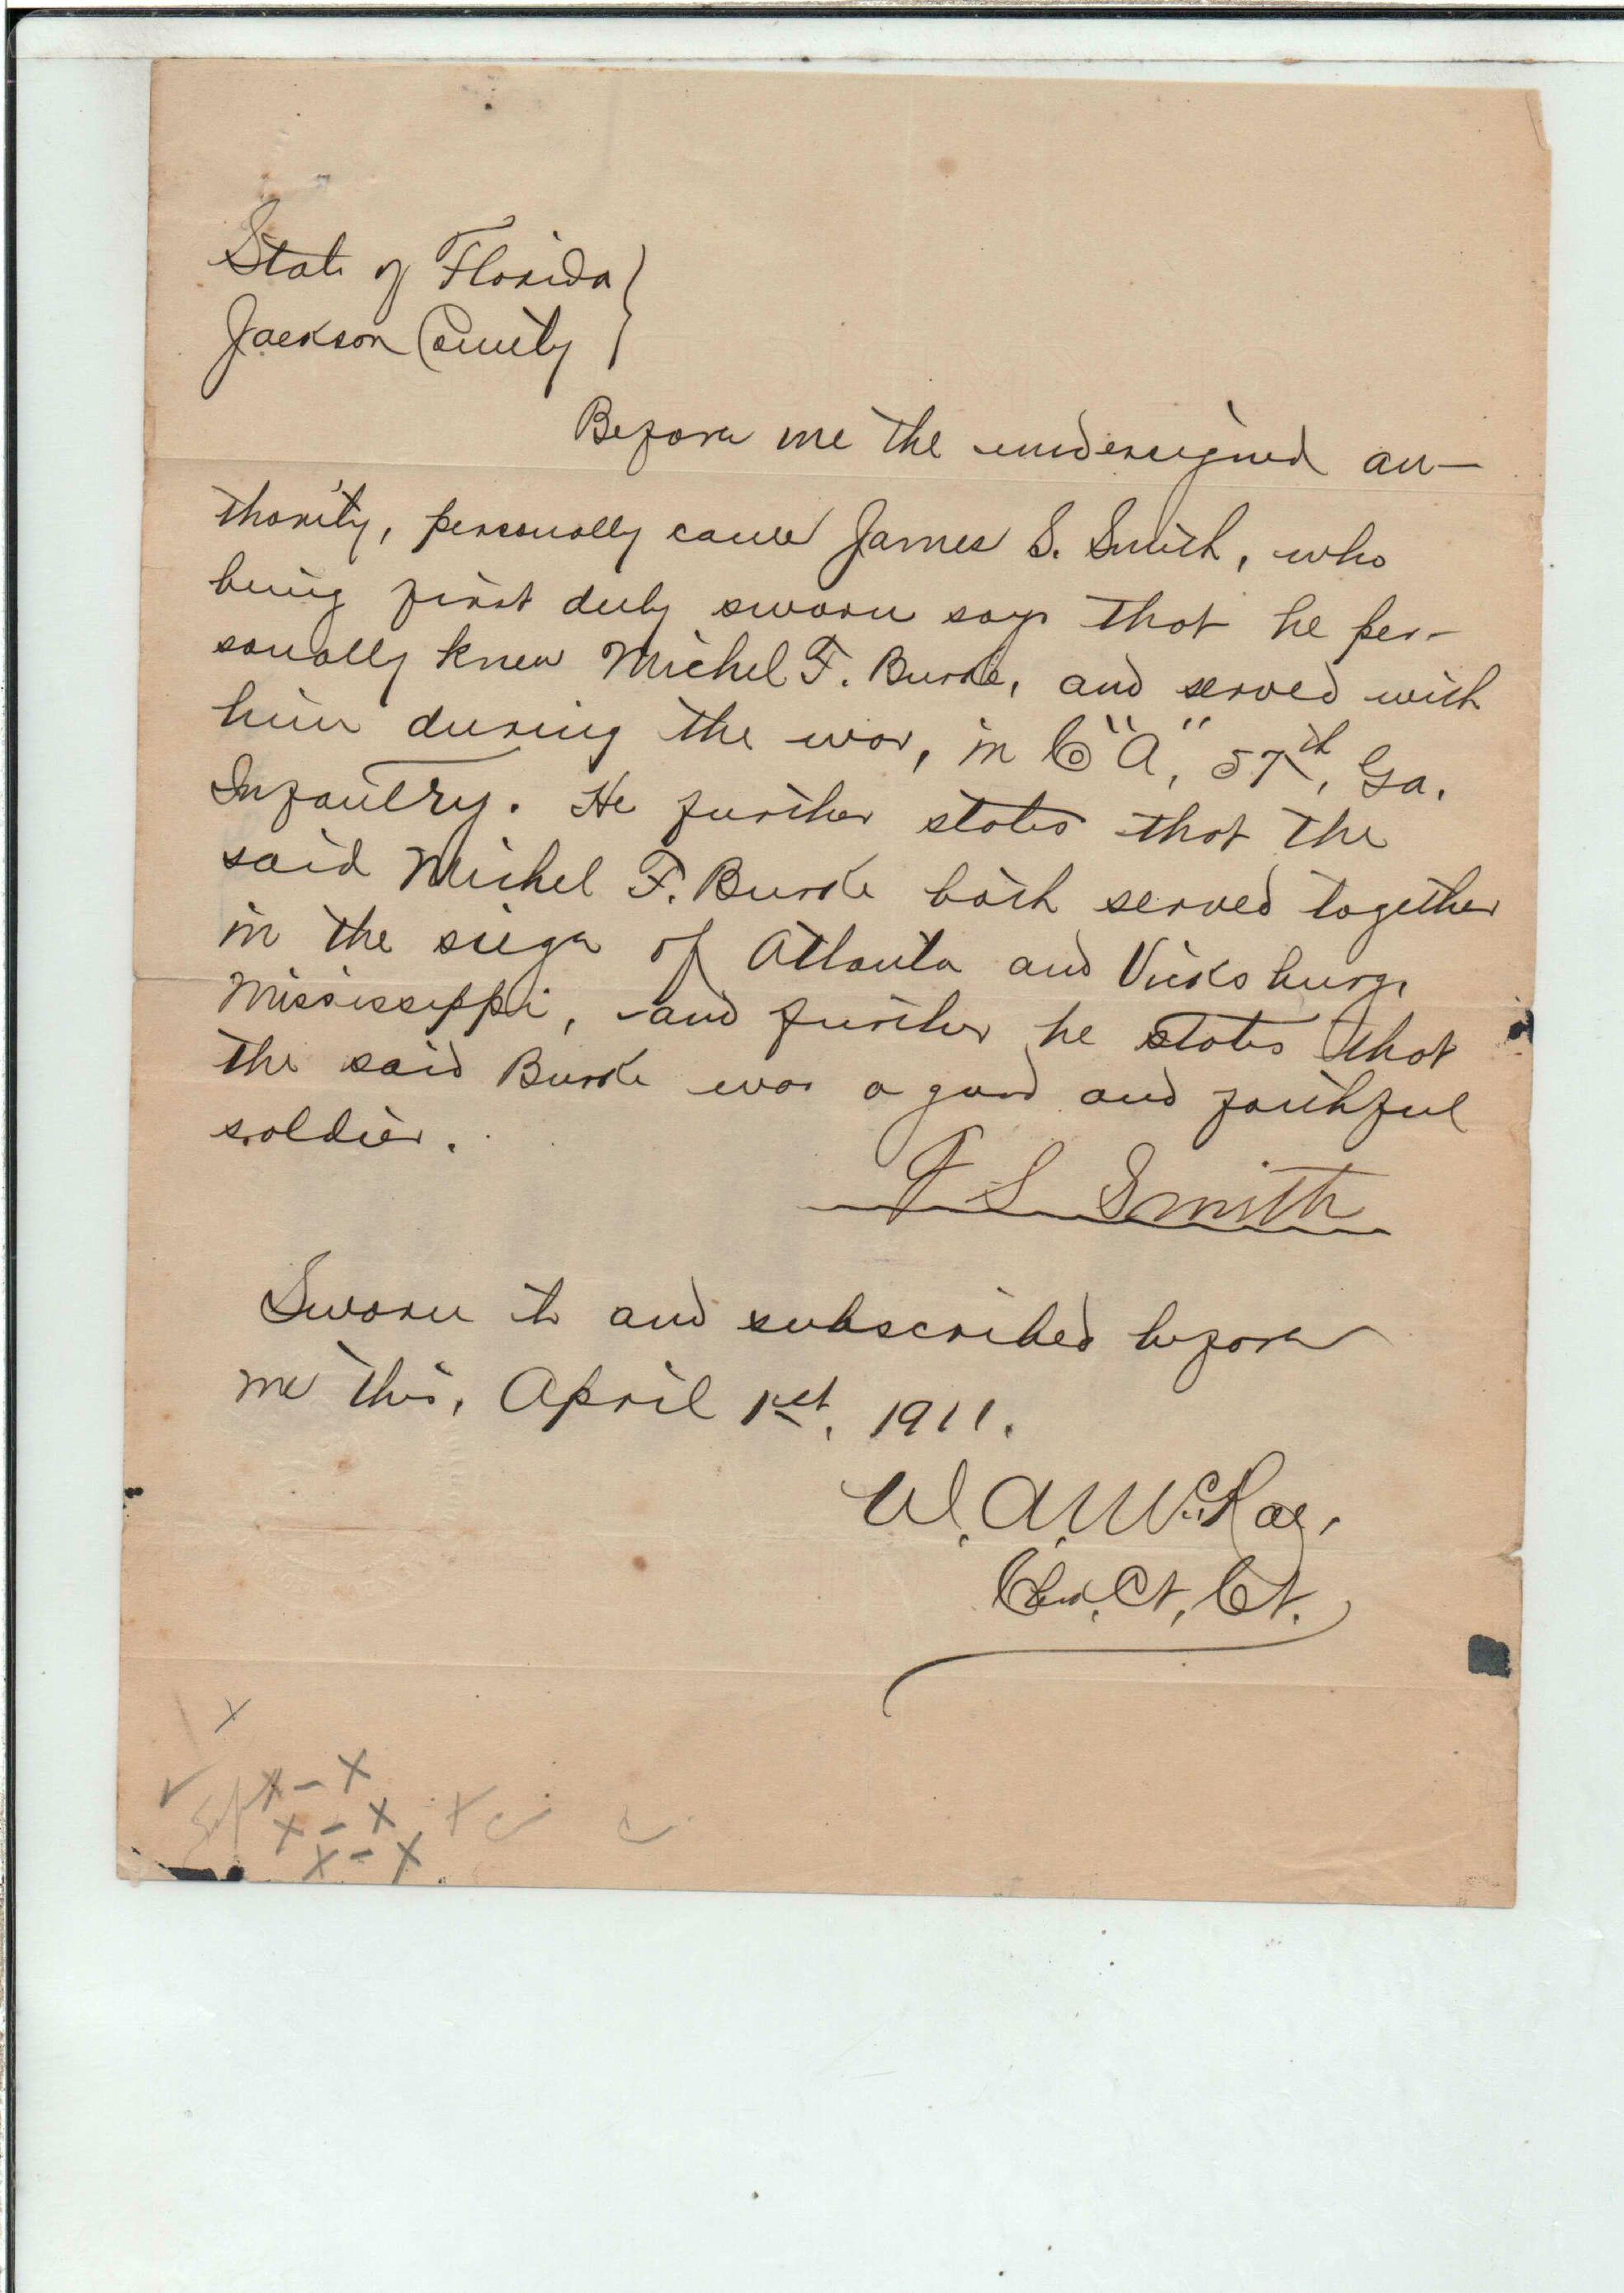 State of Florida }
Jackson County }
Before me the undersigned au-
thority, personally came James S. Smith, who
being first duly sworn says that he per-
sonally knew Michel F. Burke, and served with
him during the war, in Co "A", 57th, Ga.
Infantry. He further states that the
said Michel F. Burke both served together
in the siege of Atlanta and Vicksburg,
Mississippi, and further he states that
the said Burke was a good and faithful
soldier.
J S Smith
Sworn to and subscribed before
me this, April 1st, 1911.
W. A. McRae,
Ct. Ct.
x
x - x
x - x
x - x